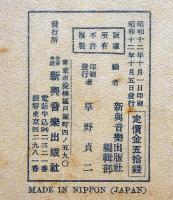 昭和十二年十月一日印刷
昭和十二年十月五日發行
定價金五拾錢
版權所有
不許複製
編者 新興音樂出版社編輯部
發行者
印刷者 草野貞二
東京市淀橋區戸塚町四ノ五九〇
發行所 新興音樂出版社
MADE IN NIPPON (JAPAN)